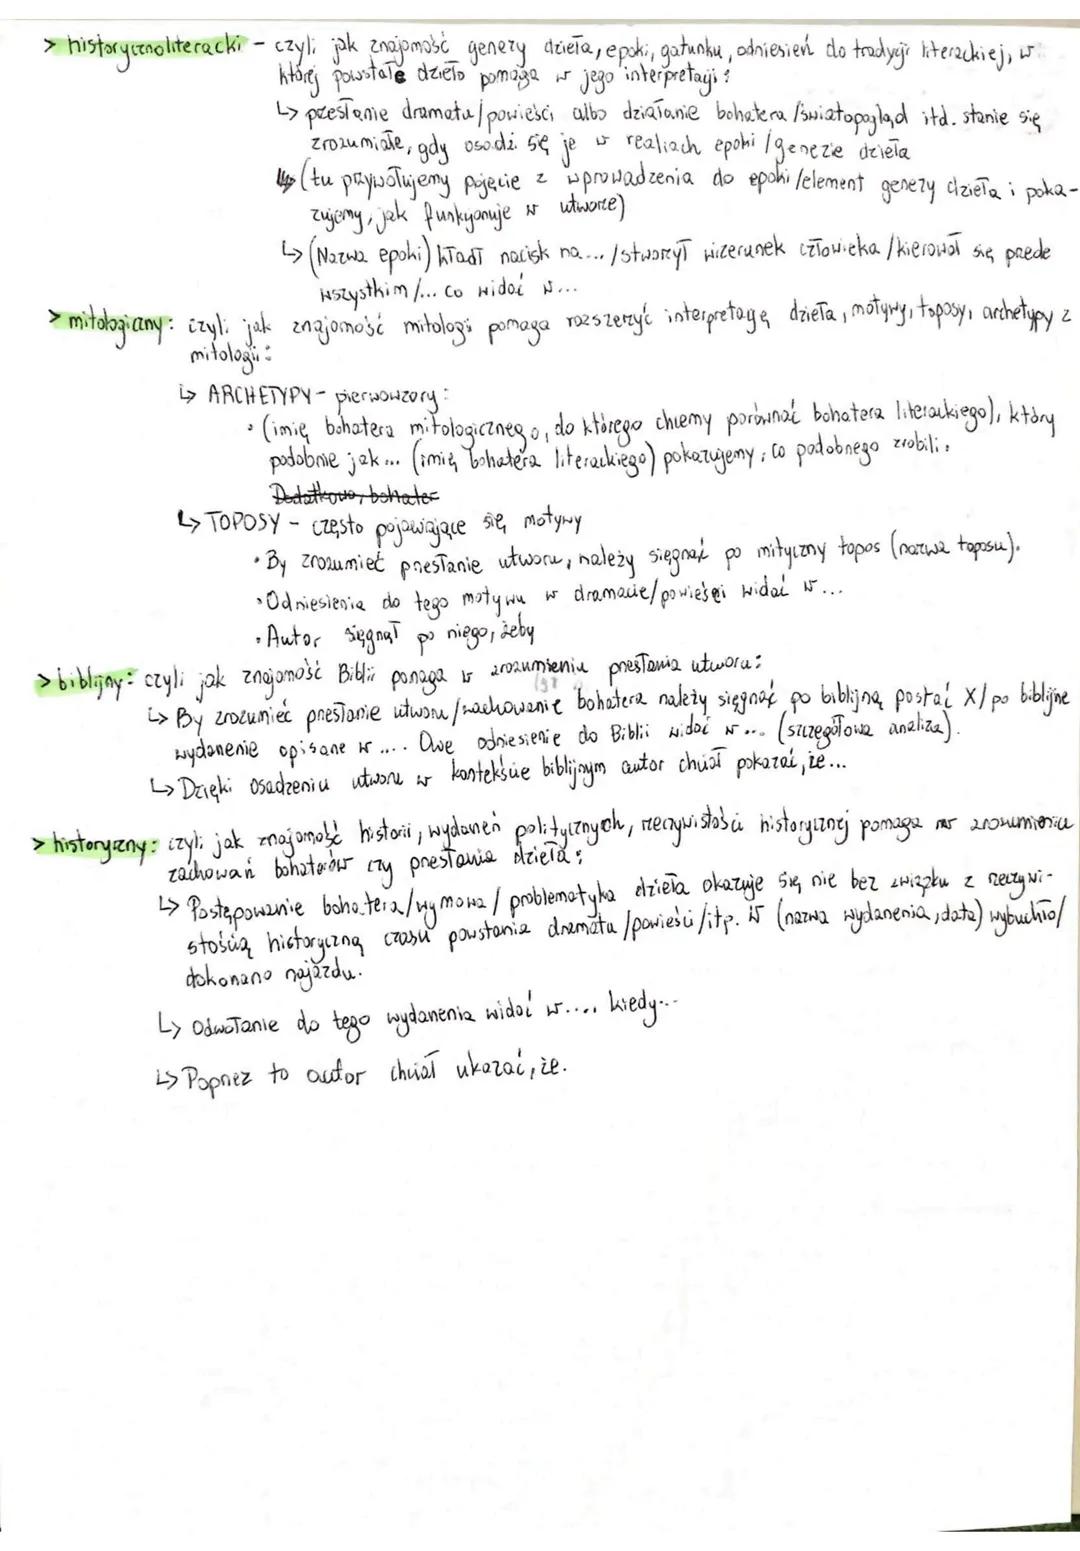 > historycznoliteracki - czyli jak znajomość genezy dzieła, epoki, gatunku, odniesień do tradycji literackiej, w
której powstałe dzieło pomaga w jego interpretacji:
↳ przesłanie dramatu/powieści albo działanie bohatera /światopogląd itd. stanie się
zrozumiałe, gdy osadzi się je w realiach epoki /genezie dzieła
↳ (tu przywołujemy pojęcie z wprowadzenia do epoki/element genezy dzieła i poka-
zujemy, jak funkcjonuje w utworze)
↳ (Nazwa epoki) kładł nacisk na... /stworzył wizerunek człowieka /kierował się przede
wszystkim /... co widać w...
> mitologiczny: czyli jak znajomość mitologii pomaga rozszerzyć interpretację dzieła, motywy, toposy, archetypy z
mitologii:
↳ ARCHETYPY - pierwowzory:
• (imię bohatera mitologicznego, do którego chcemy porównać bohatera literackiego), który
podobnie jak... (imię bohatera literackiego) pokazujemy, co podobnego zrobili.
Dodatkowo, bohater
↳ TOPOSY - często pojawiające się motywy
• By zrozumieć przesłanie utworu, należy sięgnąć po mityczny topos (nazwa toposu).
• Odniesienia do tego motywu w dramacie/powieści widać w...
• Autor sięgnął po niego, żeby
> biblijny: czyli jak znajomość Biblii pomaga w zrozumieniu przesłania utworu:
↳ By zrozumieć przesłanie utworu/zachowanie bohatera należy sięgnąć po biblijną postać X/po biblijne
wydarzenie opisane w .... Owe odniesienie do Biblii widać w... (szczegółowa analiza).
↳ Dzięki osadzeniu utworu w kontekście biblijnym autor chciał pokazać, że...
> historyczny: czyli jak znajomość historii, wydarzeń politycznych, rzeczywistości historycznej pomaga w zrozumieniu
zachowań bohaterów czy przesłania dzieła:
↳ Postępowanie bohatera/wymowa / problematyka dzieła okazuje się nie bez związku z rzeczywi-
stością historyczną czasu powstania dramatu /powieści /itp. W (nazwa wydarzenia, data) wybuchło/
dokonano najazdu.
↳ Odwołanie do tego wydarzenia widać w.... kiedy...
↳ Poprzez to autor chciał ukazać, że.